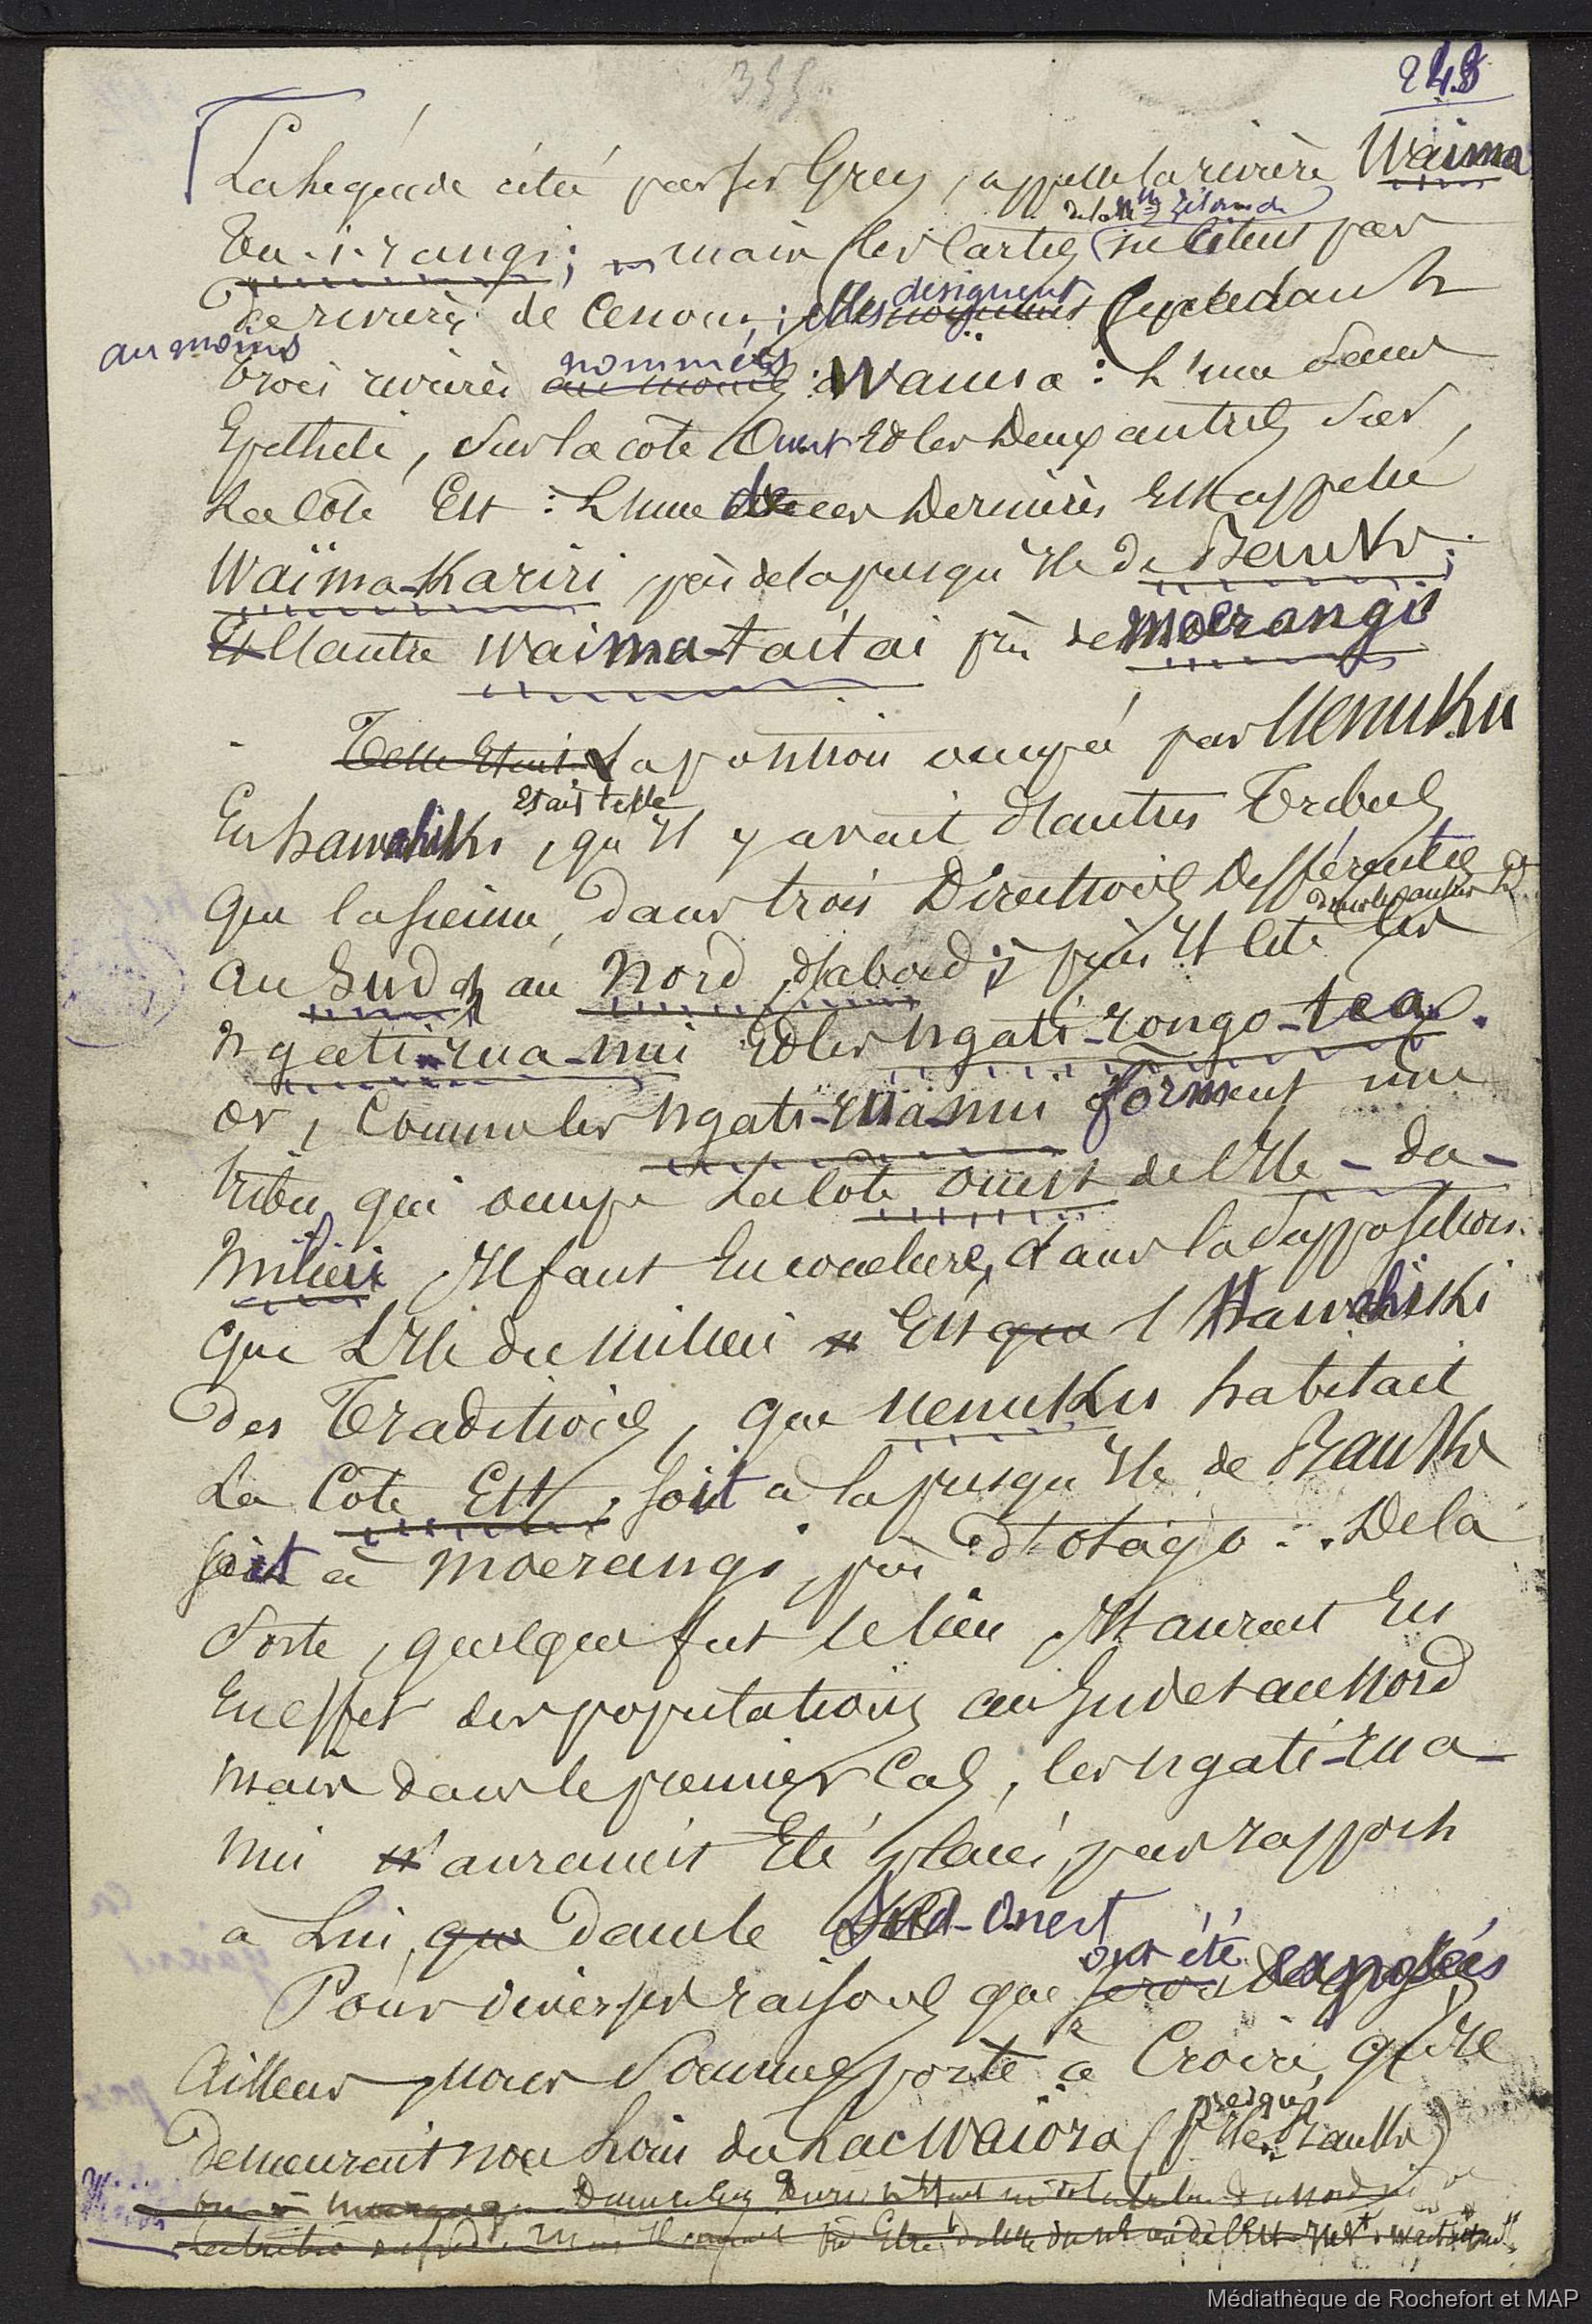 355
248
La légende citée par Sir Grey, appelle la rivière Waïma
Tu-i-rangi; mais les cartes de la Nlle Zélande ne citent pas
de rivière de ce nom; elles désignent cependant
au moins
trois rivières nommées Waïma: l'une dans
Epithète, sur la côte Ouest et les deux autres sur
la côte Est: l'une de ces dernières est appelée
Waïma-Kariri près de la presqu'ile de Banks;
et l'autre Waima-taitai près de Moerangi
Telle était la position occupée par Uenuku
était telle
En hawahiki, qu'il y avait d'autres Tribus
que la sienne, dans trois Directions différentes
au Sud et au Nord, d'abord; puis il cite les
ngati-rua-nui et les ngati-rongo-tea.
or, comme les ngati-rua-nui forment une
tribu qui occupe la côte ouest de l'Ile-du-
Milieu Il faut en conclure, dans la supposition
que l'Ile du Milieu est que l'Hawahiki
des Traditions, que Uenuku habitait
la Côte Est, soit à la presqu'Ile de Banks
soit à Moerangi, près d'Otago. De la
sorte, quelque fut le lieu Il aurait eu
en effet des populations au Sud et au Nord
mais dans le premier cas, les ngati-rua-
nui n'auraient été placés, par rapport
à Lui, que dans le Sud-Ouest
ont été
Pour diverses raisons que exposées
Ailleurs, nous sommes porté à Croire, qu'il
presqu'
demeurait non loin du Lac Waiora (Ile Banks)